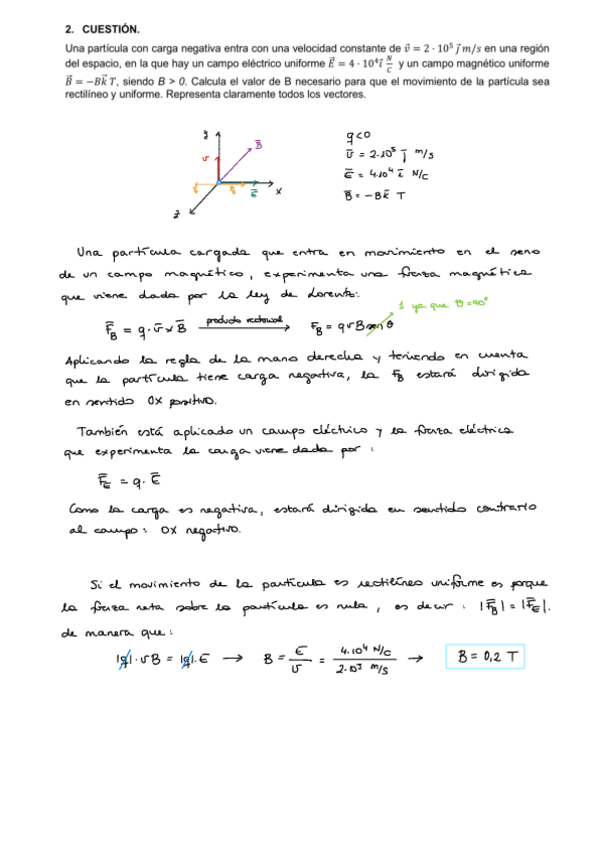 2. CUESTIÓN.
Una partícula con carga negativa entra con una velocidad constante de v⃗ = 2 · 10⁵ j⃗ m/s en una región
del espacio, en la que hay un campo eléctrico uniforme E⃗ = 4 · 10⁴ i⃗ N/C y un campo magnético uniforme
B⃗ = −Bk⃗ T, siendo B > 0. Calcula el valor de B necesario para que el movimiento de la partícula sea
rectilíneo y uniforme. Representa claramente todos los vectores.
y
B̄
v
x
E̅
z
q<0
v̄ = 2·10⁵ j̄ m/s
Ē = 4·10⁴ ī N/C
B̄ = −Bk̄ T
Una partícula cargada que entra en movimiento en el seno
de un campo magnético, experimenta una fuerza magnética
que viene dada por la ley de Lorentz:
1 ya que θ=90°
F̄_B = q·v̄×B̄ producto vectorial → F_B = qvBsenθ
Aplicando la regla de la mano derecha y teniendo en cuenta
que la partícula tiene carga negativa, la F_B estará dirigida
en sentido OX positivo.
También está aplicado un campo eléctrico y la fuerza eléctrica
que experimenta la carga viene dada por:
F̄_E = q·Ē
Como la carga es negativa, estará dirigida en sentido contrario
al campo: OX negativo.
Si el movimiento de la partícula es rectilíneo uniforme es porque
la fuerza neta sobre la partícula es nula, es decir: |F̄_B| = |F̄_E|.
de manera que:
|q|·vB = |q|·E → B = E/v = 4·10⁴ N/C / 2·10⁵ m/s → B = 0,2 T